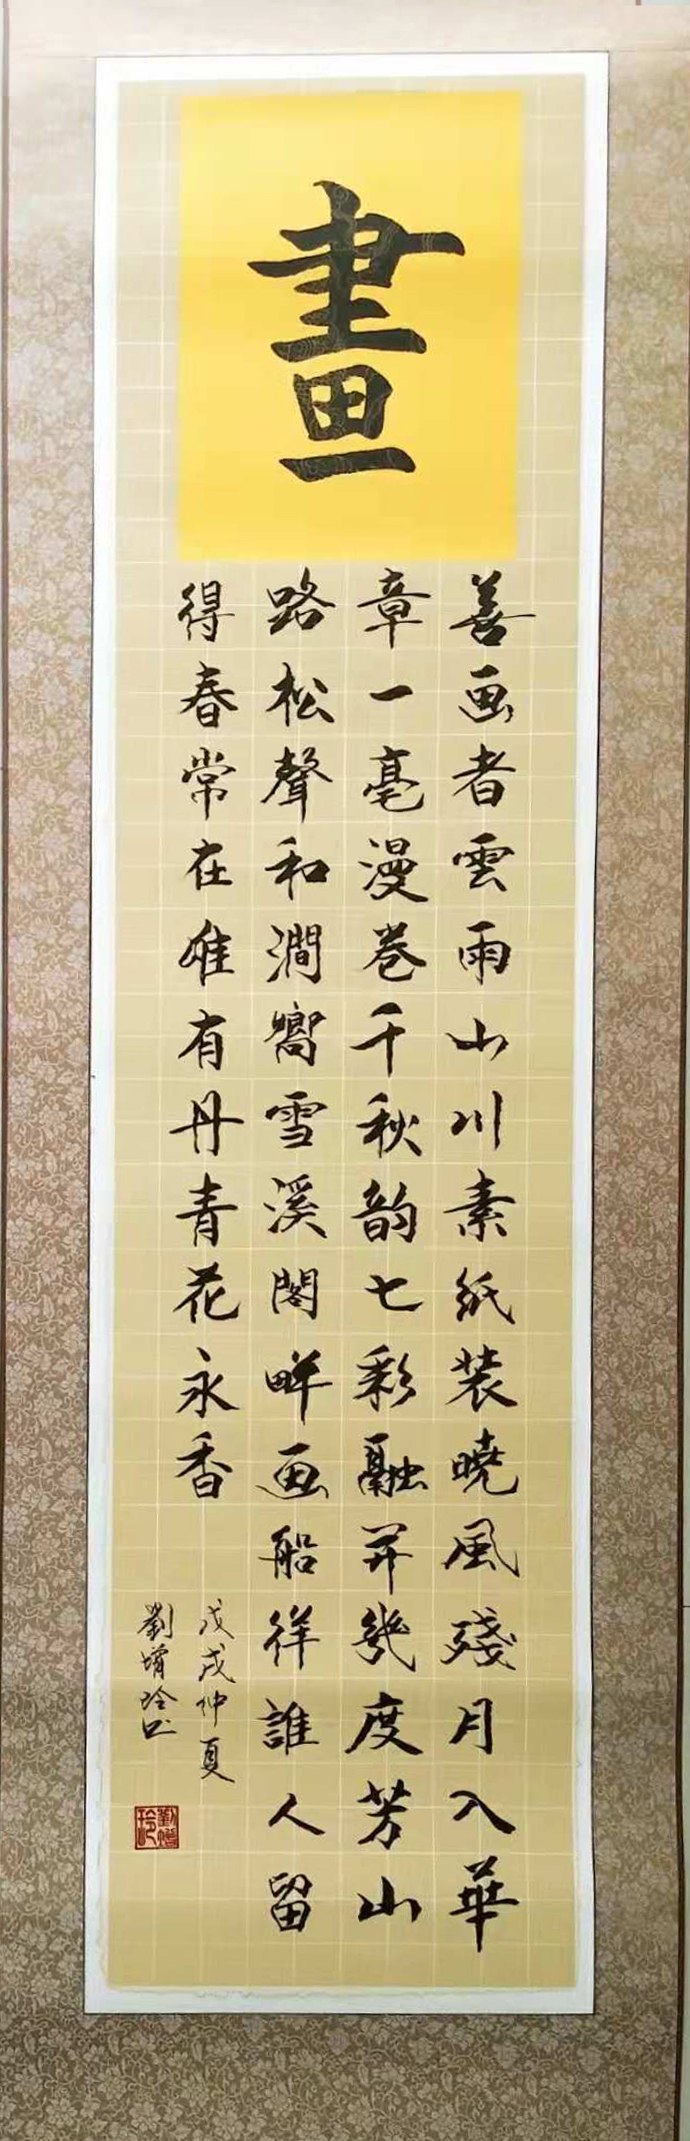 畫
善画者雲雨山川素紙装曉風殘月入華
章一毫漫卷千秋韵七彩融開幾度芳山
路松聲和澗嚮雪溪閣畔画船徉誰人留
得春常在唯有丹青花永香
戊戌仲夏
劉